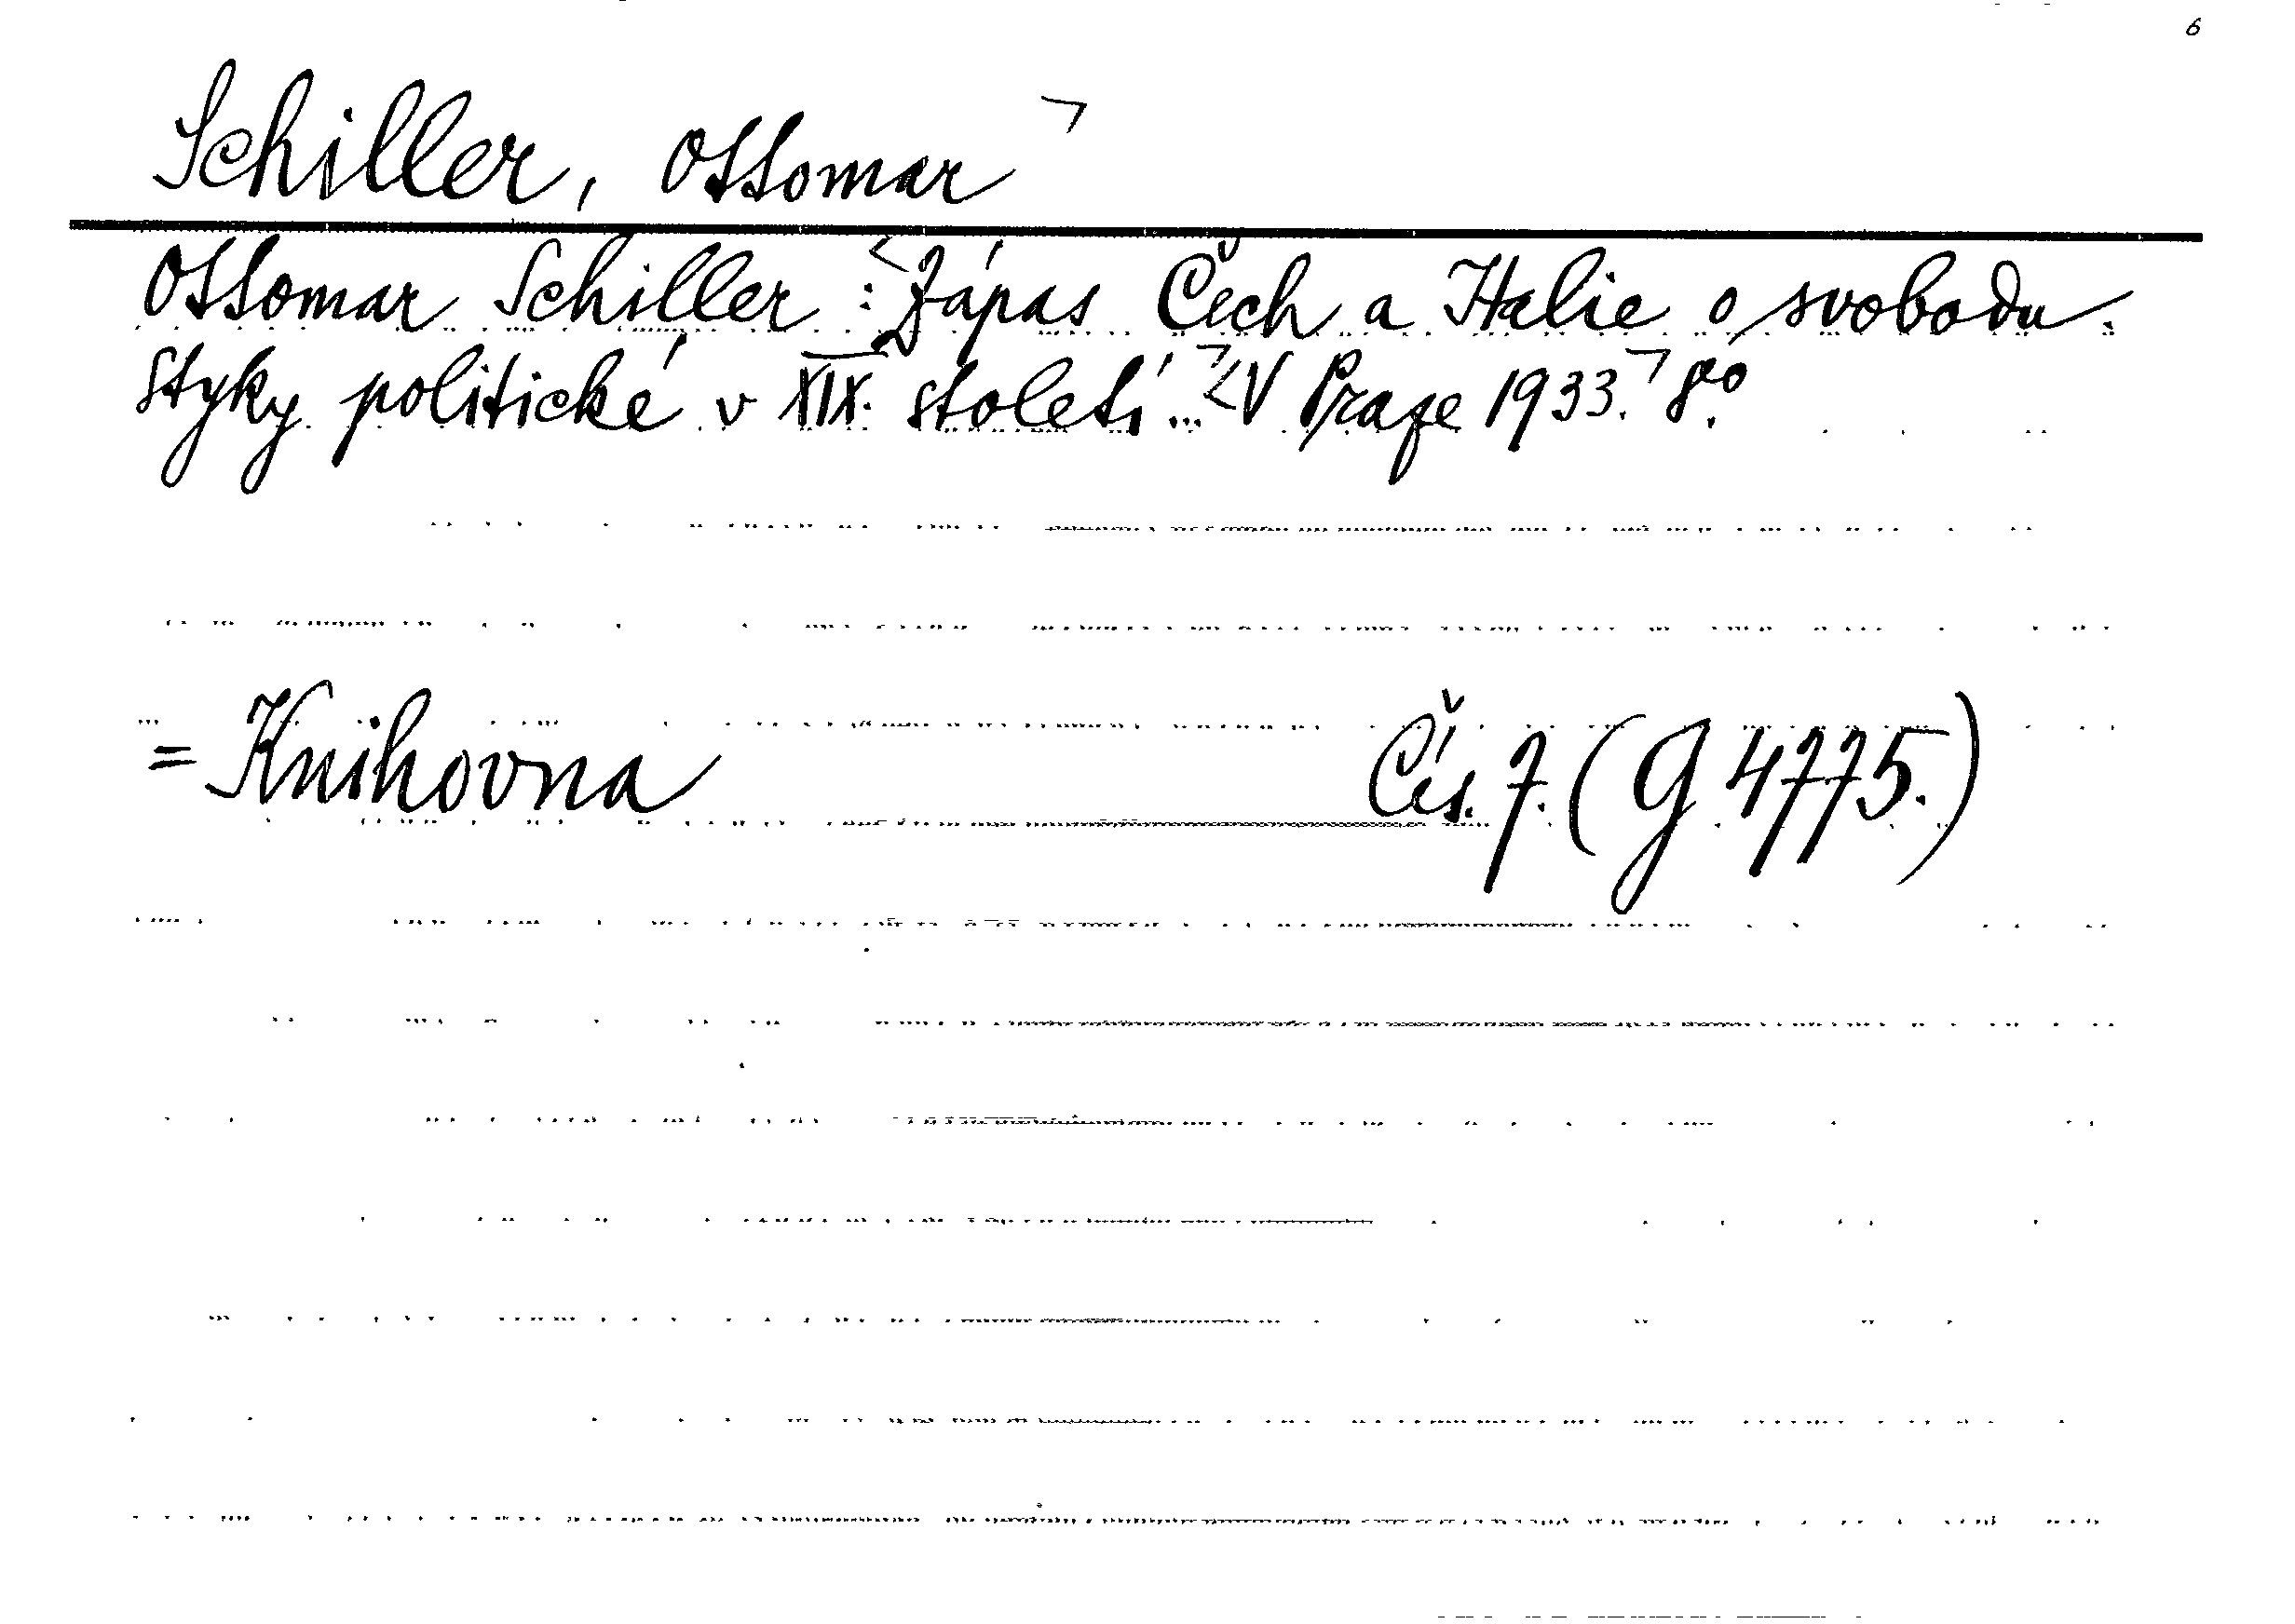 6
Schiller, Ottomar ¬
Ottomar Schiller : <Zápas Čech a Italie o svobodu.
Styky politické v XIX. století ... ¬ <V Praze 1933. ¬ 8.vo
= Knihovna Čís. 7. (G 4775.)